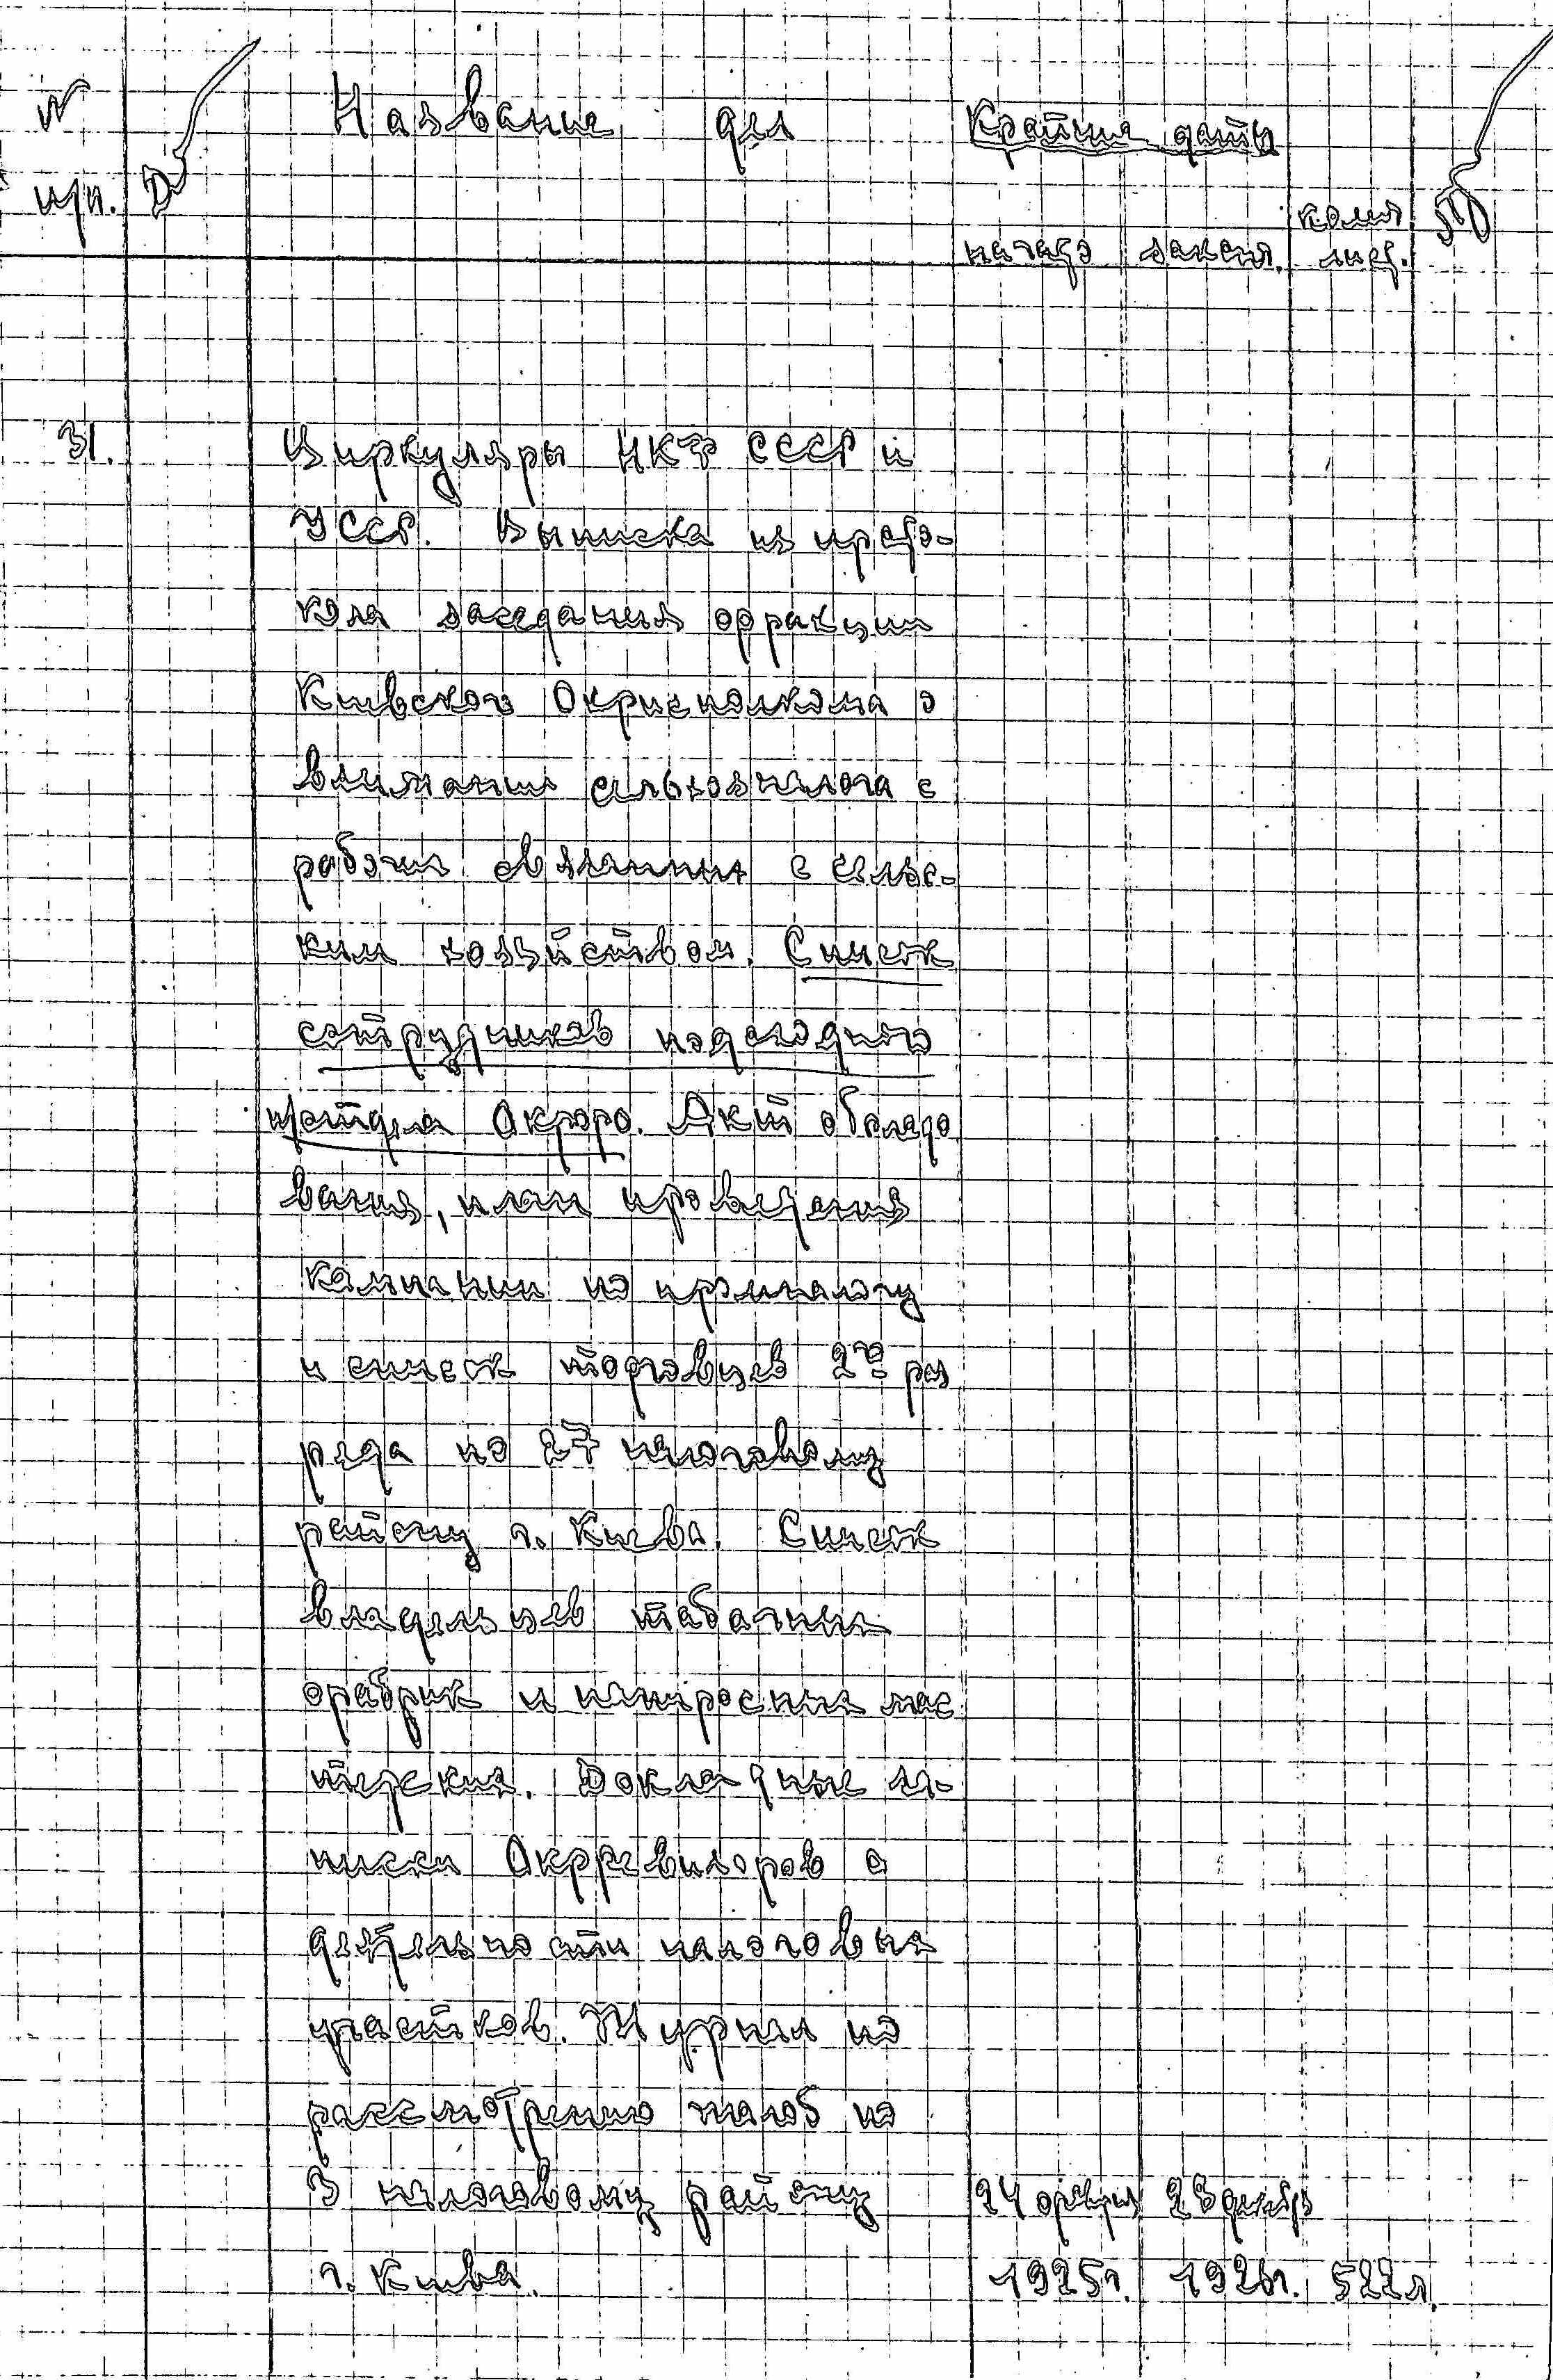 № Название дел Крайние даты
п/п. колич
начало законч. лист.
31. Циркуляры НКФ СССР и
УССР. Выписка из прото-
кола заседания фракции
Киевского Окрисполкома о
взимании сельхозналога с
рабочих связанных с сельс-
ким хозяйством. Список
сотрудников подоходного
п/отдела Окрфо. Акт обследо
вания, план проведения
кампании по промналогу
и список торговцев 2го раз
ряда по 27 налоговому
району г. Киева. Список
владельцев табачных
фабрик и папиросных мас
терских. Докладные за-
писки Окрревизоров о
деятельности налоговых
участков. Журнал по
рассмотрению жалоб по
3 налоговому району 24 февр 23 декабр
г. Киева. 1925г. 1926г. 522л.